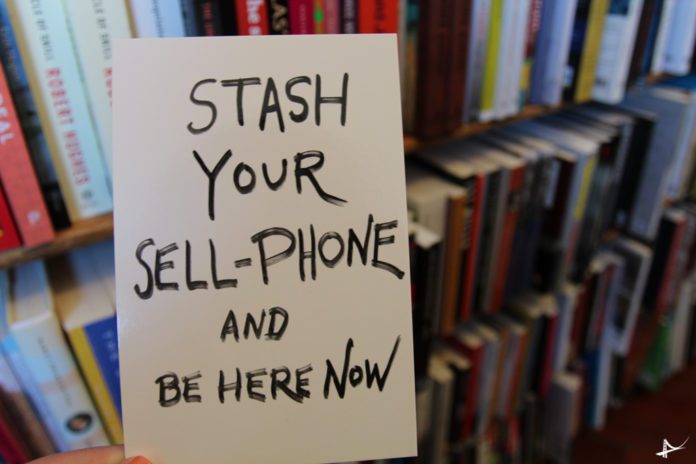 STASH
YOUR
SELL-PHONE
AND
BE HERE NOW
ROBERT HUGHES